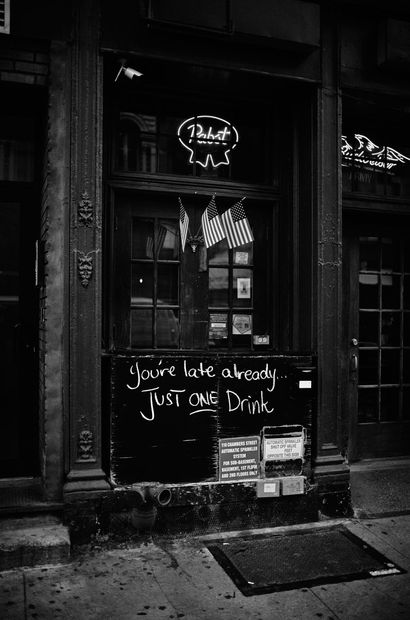 Pabst
99
You're late already...
JUST ONE Drink
118 CHAMBERS STREET
AUTOMATIC SPRINKLER
SYSTEM
FOR SUB-BASEMENT,
BASEMENT, 1ST FLOOR
AND 2ND FLOORS ONLY
AUTOMATIC SPRINKLER
SHUT OFF VALVE
FEET
OPPOSITE THIS SIGN